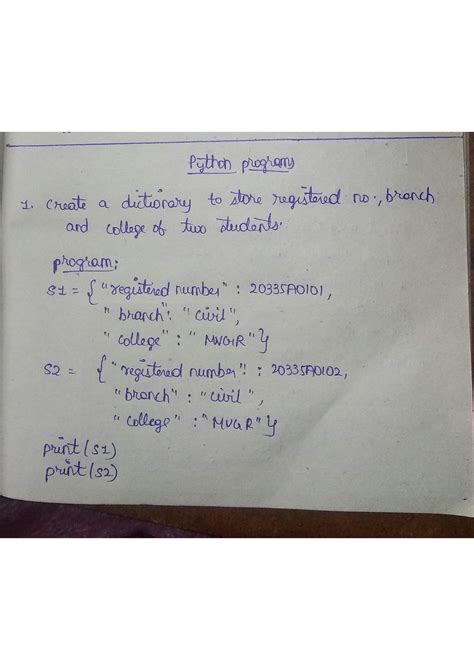 Python programs
1. Create a dictionary to store registered no., branch
and college of two students.
program:
S1 = { "registered number" : 20335A0101,
"branch": "civil",
"college" : "MVGR"}
S2 = { "registered number" : 20335A0102,
"branch" : "civil",
"college" : "MVGR"}
print(S1)
print(S2)